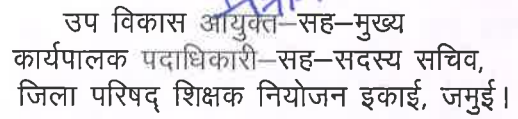 उप विकास आयुक्त–सह–मुख्य
कार्यपालक पदाधिकारी–सह–सदस्य सचिव,
जिला परिषद् शिक्षक नियोजन इकाई, जमुई।